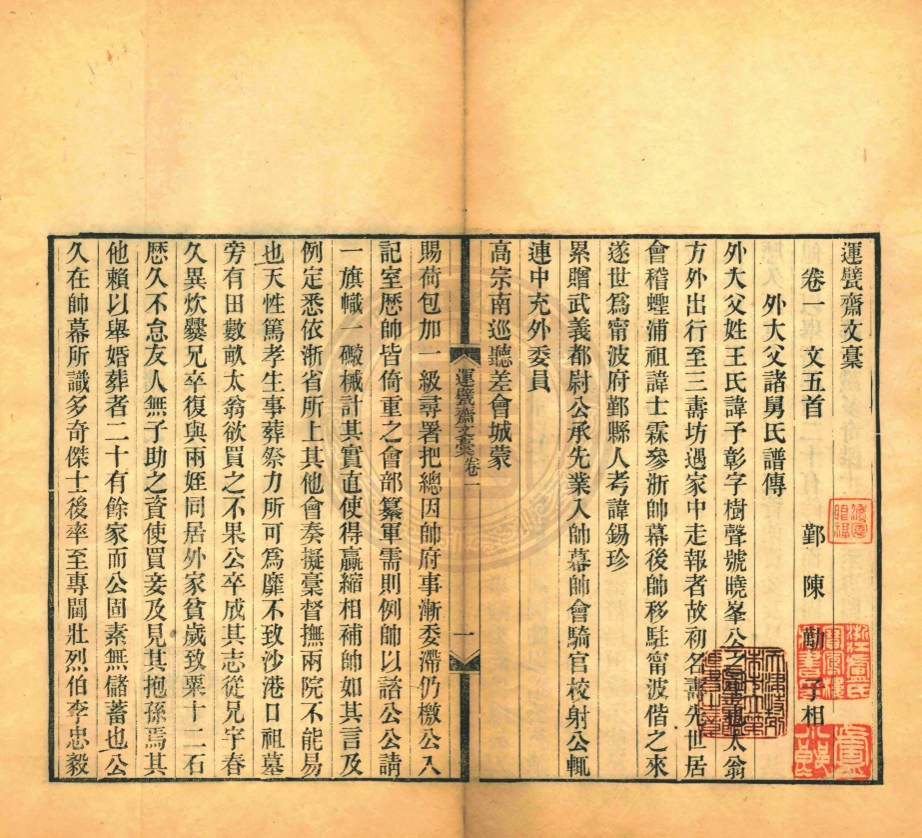 運甓齋文稾
卷一 文五首 鄞 陳 勱 子相
外大父諸舅氏譜傳
外大父姓王氏諱予彰字樹聲號曉峯公之 也太翁
方外出行至三壽坊遇家中走報者故初名壽先世居
會稽蟶浦祖諱士霖參浙帥幕後帥移駐甯波偕之來
遂世爲甯波府鄞縣人考諱錫珍
累贈武義都尉公承先業入帥幕帥會騎官校射公輒
連中充外委員
高宗南巡聽差會城蒙
運甓齋文稾 卷一
一
賜荷包加一級尋署把總因帥府事漸委滯仍檄公入
記室歷帥皆倚重之會部纂軍需則例帥以諮公公請
一旗幟一礮械計其實直使得贏縮相補帥如其言及
例定悉依浙省所上其他會奏擬稾督撫兩院不能易
也天性篤孝生事葬祭力所可爲靡不致沙港口祖墓
旁有田數畝太翁欲買之不果公卒成其志從兄宇春
久異炊爨兄卒復與兩姪同居外家貧歲致粟十二石
歷久不怠友人無子助之資使買妾及見其抱孫焉其
他賴以舉婚葬者二十有餘家而公固素無儲蓄也公
久在帥幕所識多奇傑士後率至專閫壯烈伯李忠毅